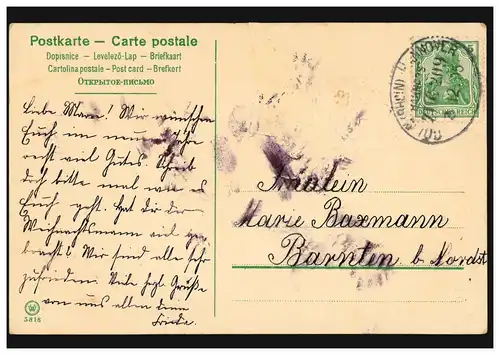 Postkarte — Carte postale
Dopisnice — Levelező-Lap — Briefkaart
Cartolina postale — Post card — Brefkort
Открытое-письмо
Liebe Marie! Wir wünschen
Euch im neuen Jahre
recht viel Gutes. Schreib
doch bitte mal wie es
Euch geht. Hat dir der
Weihnachtsmann viel ge-
bracht? Wir sind alle sehr
zufrieden. Viele hrzl. Grüße
von uns allen deine
Frieda.
5818
DEUTSCHES REICH
5
Fräulein
Marie Baxmann
Barnten b. Nordst